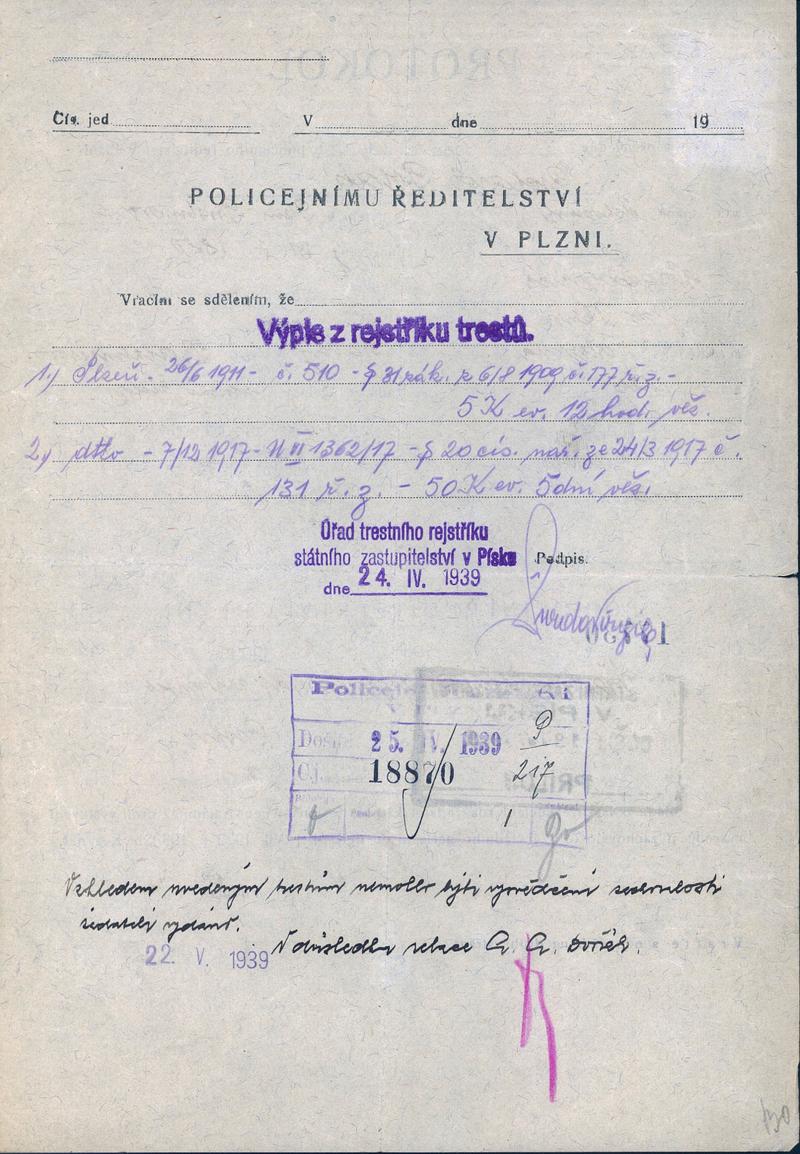 Čís. jed
V dne 19
POLICEJNÍMU ŘEDITELSTVÍ
V PLZNI.
Vracím se sdělením, že
Výpis z rejstříku trestů.
1.) Plzeň - 26/6 1911 - č. 510 - § 31 zák. z 6/8 1909 č. 177 ř. z. -
5 K ev. 12 hod. věz.
2.) dtto - 7/12 1917 - U VI 1362/17 - § 20 cís. nař. ze 24/3 1917 č.
131 ř. z. - 50 K ev. 5 dní věz.
Úřad trestního rejstříku
státního zastupitelství v Písku
Podpis.
dne 24. IV. 1939
Policej
Došlo 25. IV. 1939 P
Čj. 18870 217
1
Vzhledem uvedeným trestům nemohlo býti vysvědčení zachovalosti
žadateli vydáno.
22. V. 1939
V důsledku relace
130